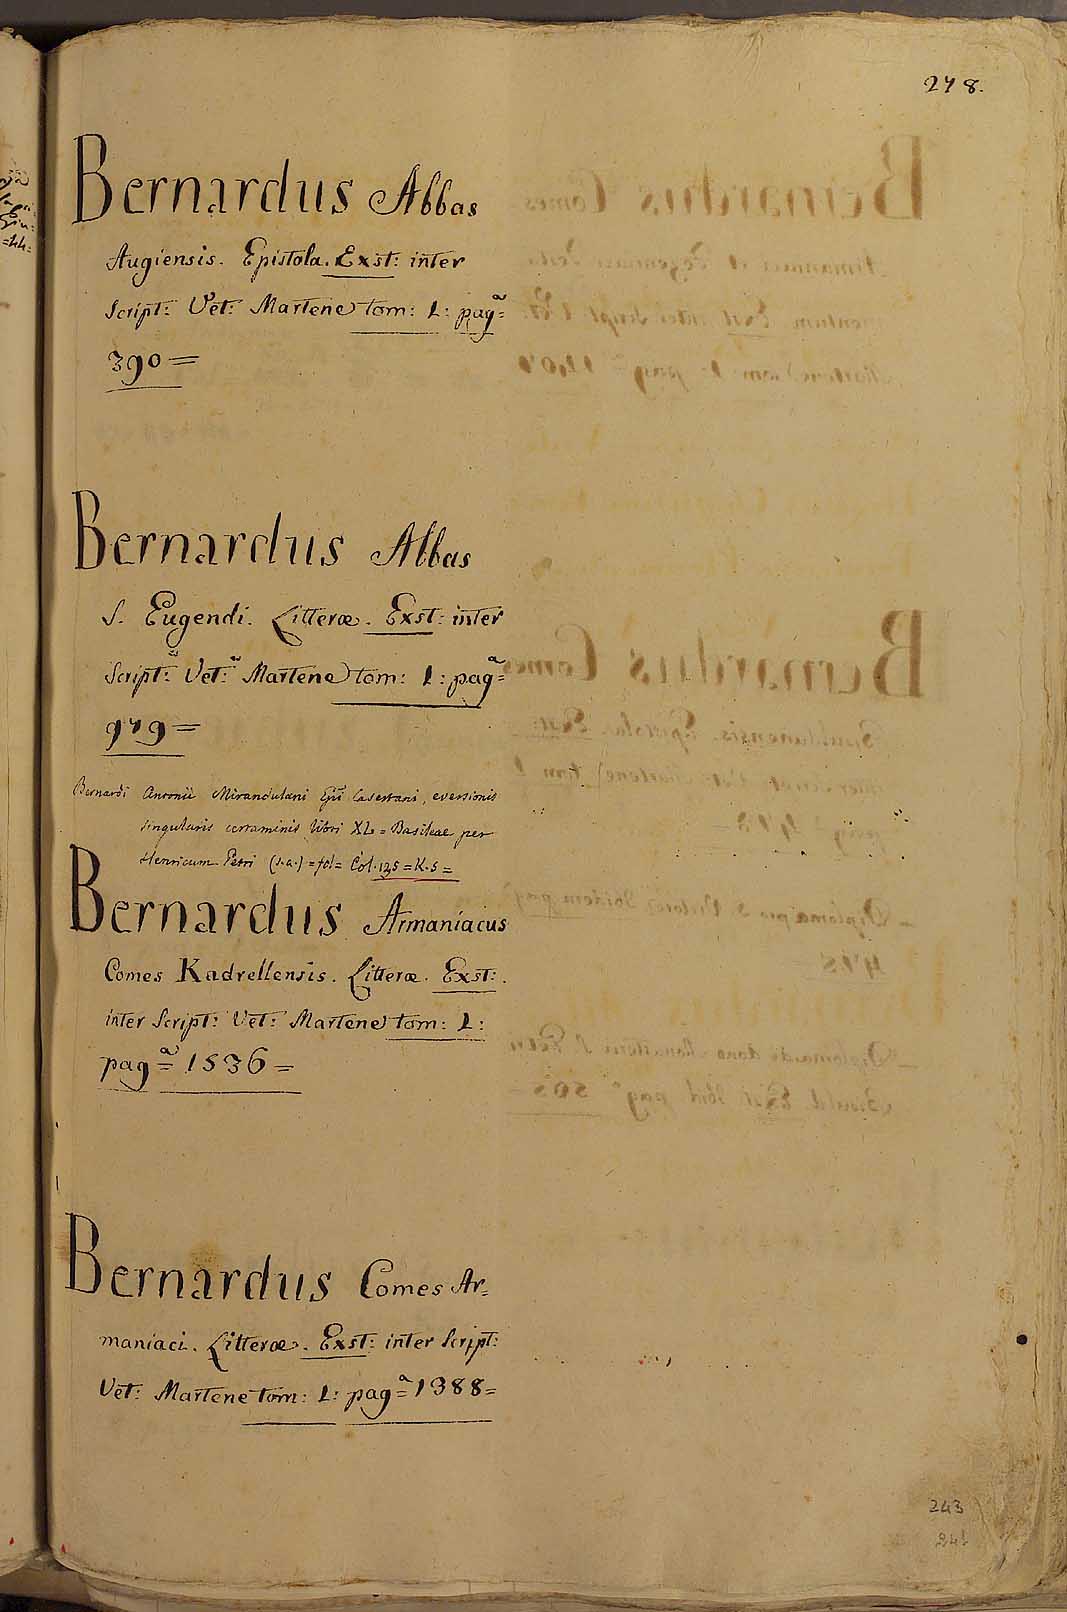 278.
Bernardus Abbas
Augiensis. Epistola. Exst: inter
Script: Vet: Martene tom: 1: pagᵃ=
390=
Bernardus Abbas
S. Eugendi. Litteræ. Exst: inter
Script:ᵃ Vet:ᵃ Martene tom: 1: pagᵃ=
979=
Bernardi Antonii Mirandulani Epi Casertani, eversionis
singularis certaminis libri XL= Basileae per
Henricum Petri (s.a.)=fol= Col. 125=K.5=
Bernardus Armaniacus
Comes Kadrellensis. Litteræ. Exst:
inter Script: Vet: Martene tom: 1:
pagᵃ= 1536=
Bernardus Comes Ar=
maniaci. Litteræ. Exst: inter Script:
Vet: Martene tom: 1: pagᵃ= 1388=
243
241